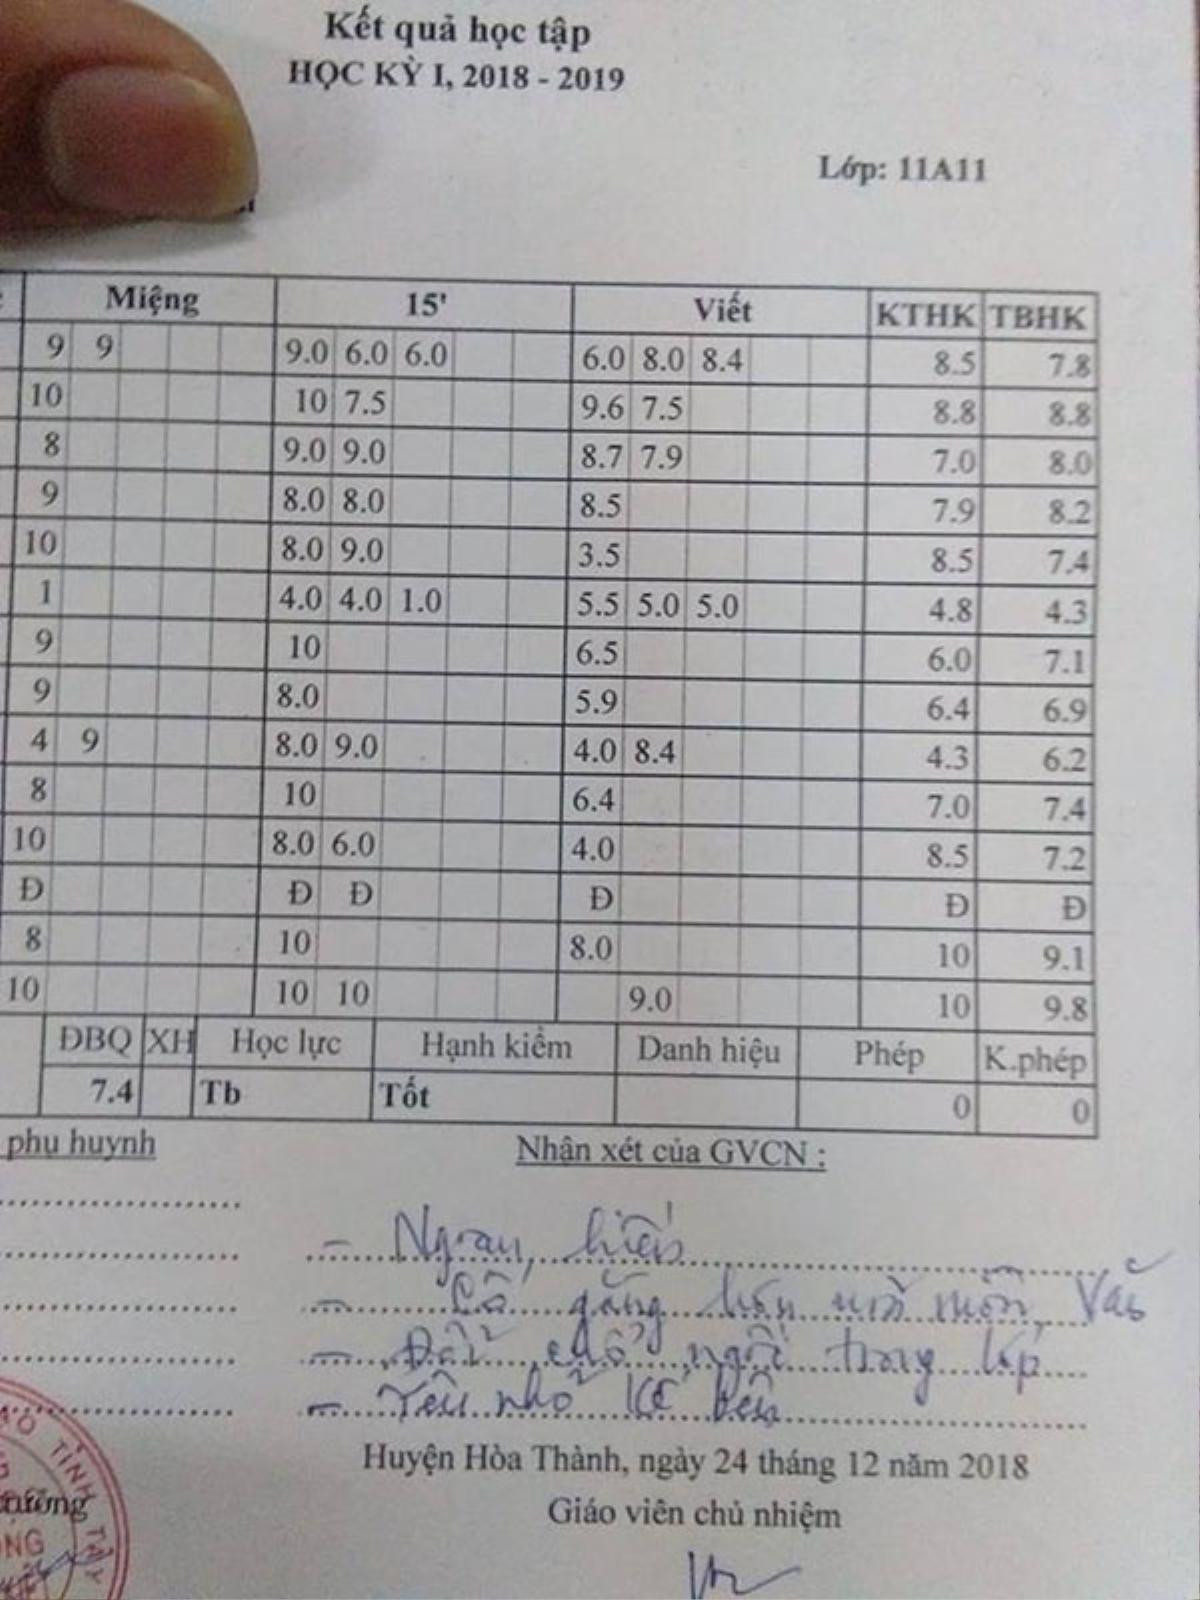 Kết quả học tập
HỌC KỲ I, 2018 - 2019
Lớp: 11A11
Miệng 15' Viết KTHK TBHK
9 9 9.0 6.0 6.0 6.0 8.0 8.4 8.5 7.8
10 10 7.5 9.6 7.5 8.8 8.8
8 9.0 9.0 8.7 7.9 7.0 8.0
9 8.0 8.0 8.5 7.9 8.2
10 8.0 9.0 3.5 8.5 7.4
1 4.0 4.0 1.0 5.5 5.0 5.0 4.8 4.3
9 10 6.5 6.0 7.1
9 8.0 5.9 6.4 6.9
4 9 8.0 9.0 4.0 8.4 4.3 6.2
8 10 6.4 7.0 7.4
10 8.0 6.0 4.0 8.5 7.2
Đ Đ Đ Đ Đ Đ
8 10 8.0 10 9.1
10 10 10 9.0 10 9.8
ĐBQ XH Học lực Hạnh kiểm Danh hiệu Phép K.phép
7.4 Tb Tốt 0 0
phụ huynh Nhận xét của GVCN :
- Ngoan, hiền
- Cố gắng hơn nữa môn Văn
- Đổi chỗ ngồi trong lớp
- Yêu nhỏ kế bên
Huyện Hòa Thành, ngày 24 tháng 12 năm 2018
Giáo viên chủ nhiệm
TỈNH TÂY